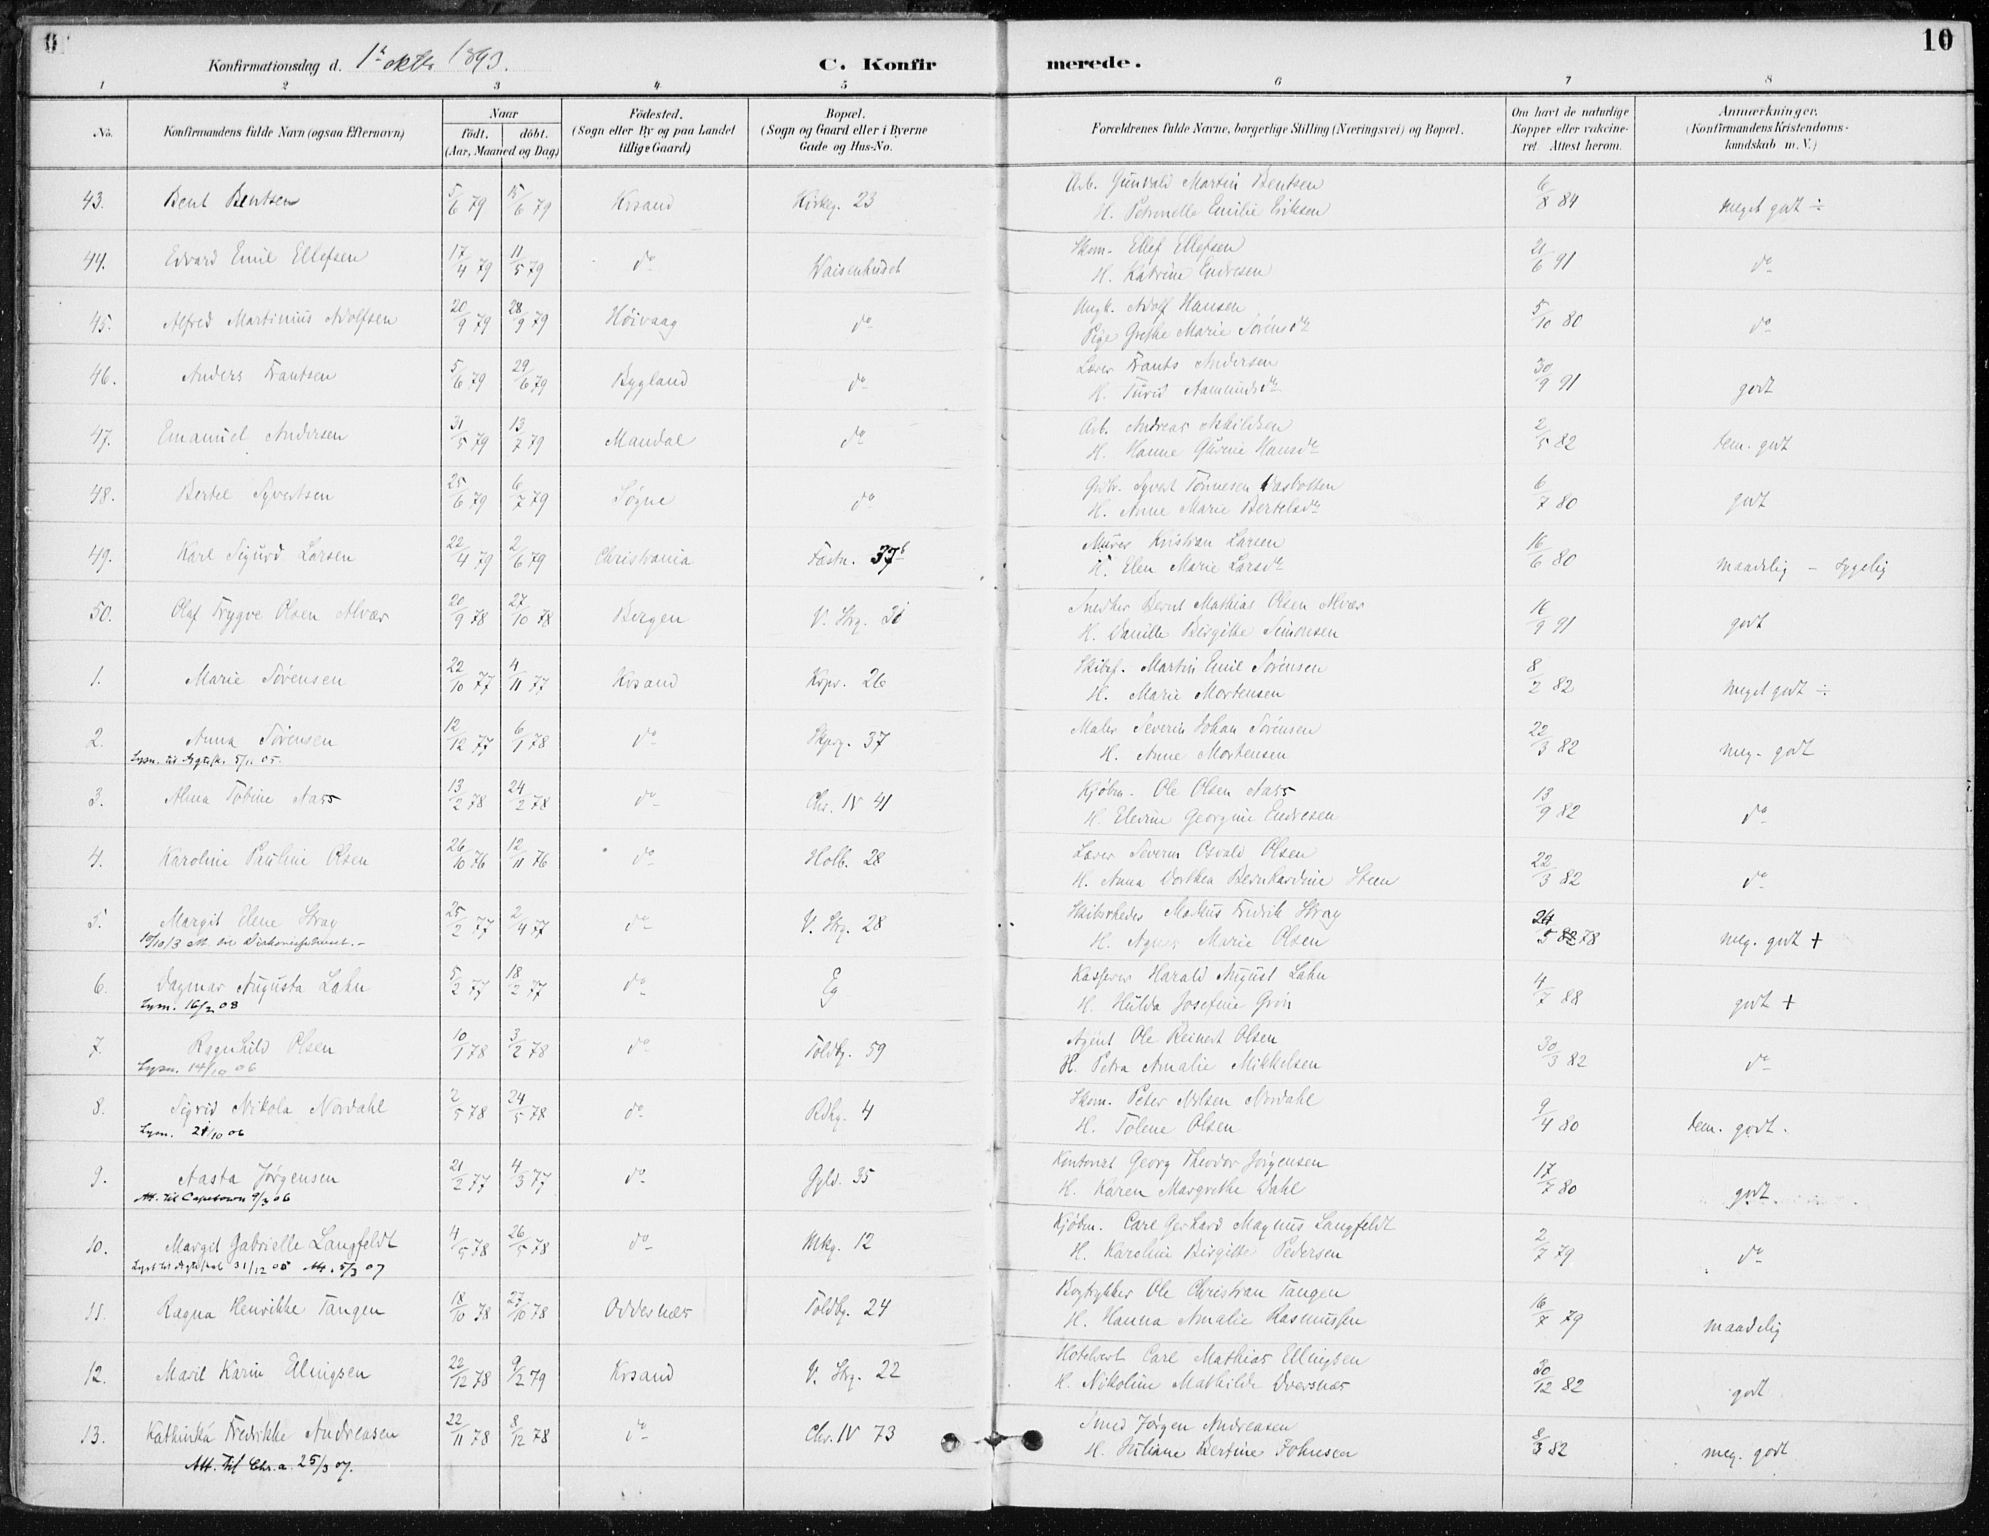 10
Konfirmationsdag d. 1ste oktbr 1893.
C. Konfirmerede.
1 2 3 4 5 6 7 8
No.
Konfirmandens fulde Navn (ogsaa Efternavn)
Naar
født. døbt.
(Aar, Maaned og Dag)
Fødested.
(Sogn eller By og paa Landet
tillige Gaard)
Bopæl.
(Sogn og Gaard eller i Byerne
Gade og Hus-No.
Forældrenes fulde Navne, borgerlige Stilling (Næringsvei) og Bopæl.
Om havt de naturlige
Kopper eller vakcine-
ret. Attest herom.
Anmærkninger.
(Konfirmandens Kristendoms-
kundskab m. V.)
43. Bent Bentsen 5/6 79 15/6 79 Krsand Kirkeg. 23 Arb. Gunvald Martin Bentsen 6/8 84 meget godt ÷
H. Petronelle Emilie Eriksen
44. Edvard Emil Ellefsen 17/4 79 11/5 79 do Waisenhuset Skom. Ellef Ellefsen 21/6 91 do
H. Katrine Endresen
45. Alfred Martinius Adolfsen 20/9 79 28/9 79 Høivaag do Ungk. Adolf Hansen 5/10 80 do
Pige Grethe Marie Sørensdr
46. Anders Frantsen 5/6 79 29/6 79 Bygland do Lærer Frants Andersen 30/9 91 godt
H. Turid Aamundsdr
47. Emanuel Andersen 31/5 79 13/7 79 Mandal do Arb. Andreas 2/5 82 tem. godt
H. Hanne Gurine Hansdr
48. Bertel Syvertsen 25/6 79 6/7 79 Søgne do Grdbr. Syvert Tønnesen 6/7 80 godt
H. Anne Marie Bertelsdr
49. Karl Sigurd Larsen 22/4 79 2/6 79 Christiania Fæstn. 37b Murer Kristian Larsen 16/6 80 maadelig – sygelig
H. Elen Marie Larsdr
50. Olaf Trygve Olsen Alvær 20/9 78 27/10 78 Bergen V. Strg. 31 Snedker Bernt Mathias Olsen Alvær 16/9 91 godt
H. Danille Birgitte Simonsen
1. Marie Sørensen 22/10 77 4/11 77 Krsand Kspr. 26 Skibsf. Martin Emil Sørensen 8/2 82 meget godt ÷
H. Marie Mortensen
2. Anna Sørensen 12/12 77 6/1 78 do Skprg. 37 Maler Severin Johan Sørensen 22/3 82 meg. godt
Lysn. til Ægtesk. 5/1. 05. H. Anne Mortensen
3. Alma Tobine Aass 13/2 78 24/2 78 do Chr. IV 41 Kjøbm. Ole Olsen Aass 13/9 82 do
H. Elevine Georgine Endresen
4. Karoline Pauline Olsen 26/10 76 12/11 76 do Holb. 28 Lærer Severin Osvald Olsen 22/3 82 do
H. Anna Dorthea Bernhardine Steen
5. Margit Elene Stray 25/2 77 2/4 77 do V. Strg. 28 Skibsrheder Markus Fredrik Stray 24/5 82 78 meg. godt +
H. Agnes Marie Olsen
6. Dagmar Augusta Lahn 5/2 77 18/2 77 do Eg Kasserer Harald August Lahn 4/7 88 godt +
Lysn. 16/2 08 H. Hulda Josefine Grøn
7. Ragnhild Olsen 10/1 78 3/2 78 do Toldbg. 59 Agent Ole Reinert Olsen 30/3 82 do
Lysn. 14/10 06 H. Petra Amalie Mikkelsen
8. Sigrid Nikola Nordahl 2/5 78 24/5 78 do Rdhg. 4 Skom. Peter Nilsen Nordahl 9/4 80 tem. godt.
Lysn. 21/10 06 H. Tolene Olsen
9. Aasta Jørgensen 21/2 77 4/3 77 do Gyld. 35 Kontorist Georg Theodor Jørgensen 17/7 80 godt.
Att. til Capetown 9/3 06 H. Karen Margrethe Dahl
10. Margit Gabrielle Langfeldt 4/5 78 26/5 78 do Mkg. 12 Kjøbm. Carl Gerhard Magnus Langfeldt 2/7 79 do
Lyst til Ægteskab 31/12 05 Att. 5/3 07 H. Karoline Birgitte Pedersen
11. Ragna Henrikke Tangen 18/10 78 27/10 78 Oddernes Toldbg. 24 Bogtrykker Ole Christian Tangen 16/7 79 maadelig
H. Hanna Amalie Rasmussen
12. Marit Karin Ellingsen 22/12 78 9/2 79 Krsand V. Strg. 22 Hotelvert Carl Mathias Ellingsen 30/12 82 godt
H. Nikoline Mathilde Dversnes
13. Kathinka Fredrikke Andreasen 22/11 78 8/12 78 do Chr. IV 73 Smed Jørgen Andreasen 8/3 82 meg. godt
Att. til Chr.a. 25/3 07. H. Juliane Bertine Johnsen